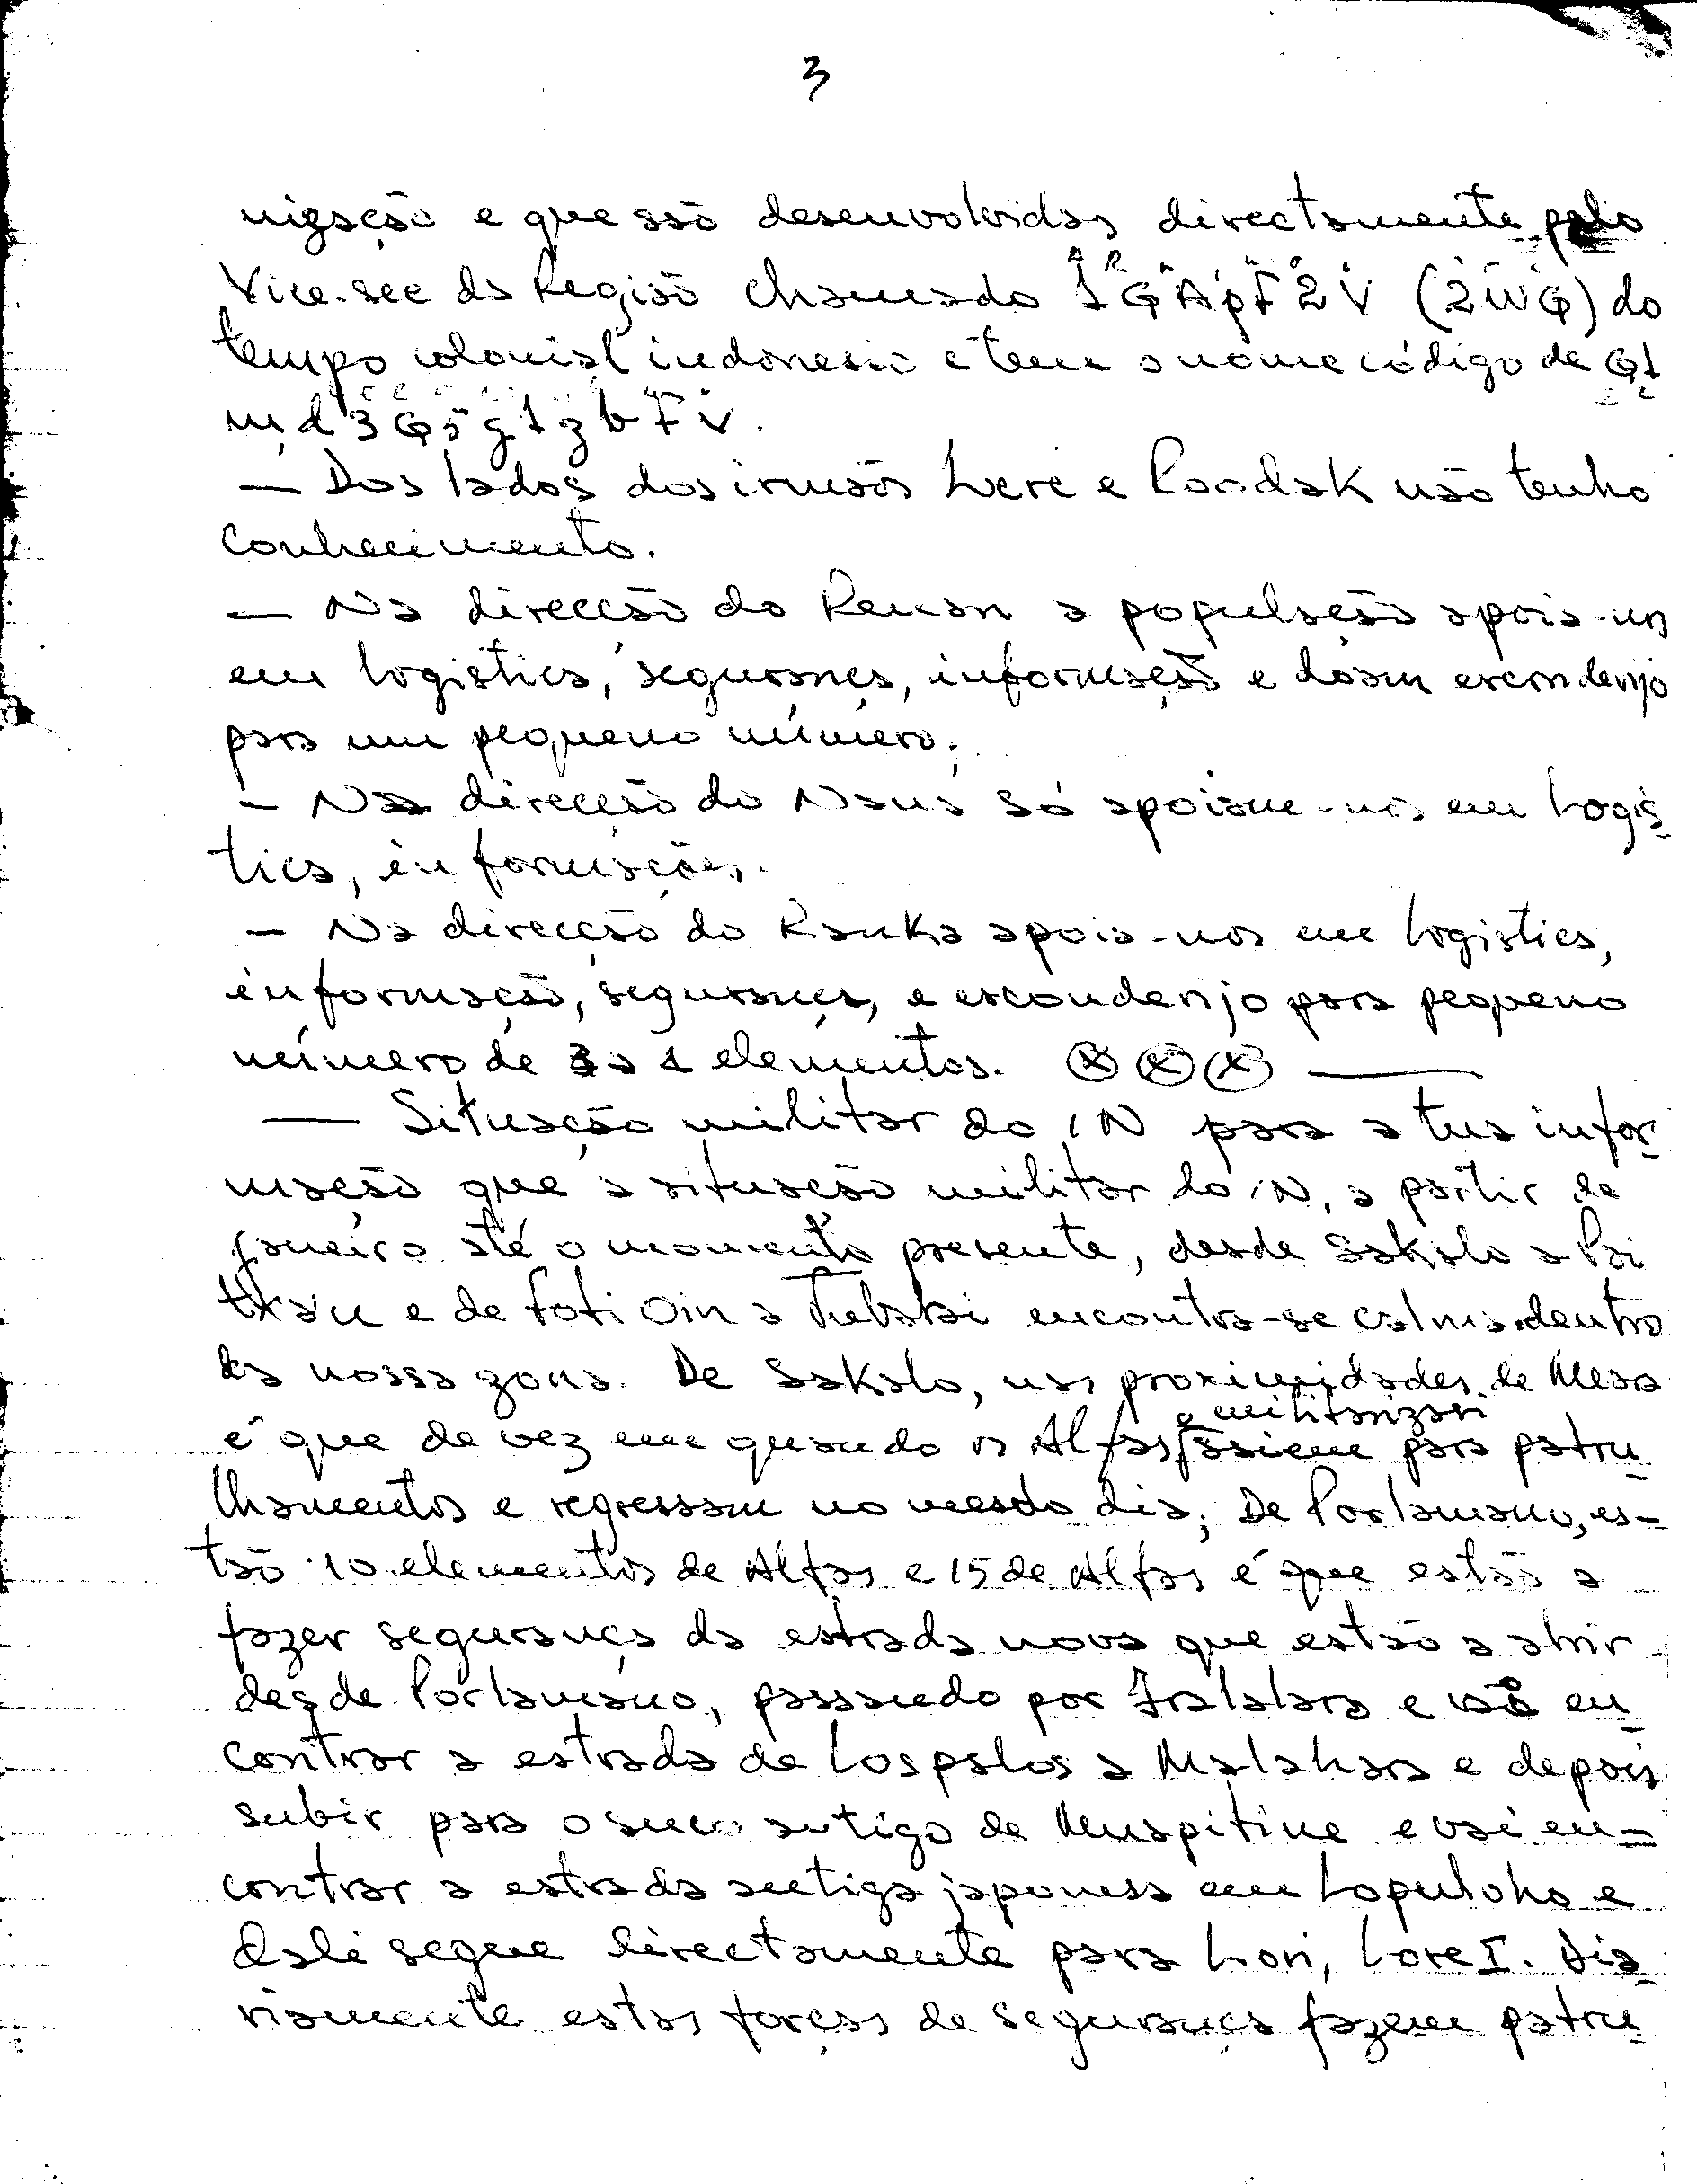 3
nização e que são desenvolvidas directamente pelo
Vice-sec da Região chamado 1GApF2V (2WG) do
tempo colonial indonesio e tem o nome código de G1
md3G5g1gbFv.
— Dos lados dos irmãos Lere e Roodak não tenho
conhecimento.
— Na direcção do Renan a população apoia-nos
em logistica, segurança, informação e
para um pequeno número;
— Na direcção do Nauá só apoiam-nos em Logis-
tica, informações.
— Na direcção do Ranka apoia-nos em logistica,
informação, segurança, e esconderijo para pequeno
número de 3 a 1 elementos. ⊗ ⊗ ⊗ ——
— Situação militar do IN para a tua infor-
mação que a situação militar do IN, a partir de
Janeiro até o momento presente, desde Sakalo a Pai
txau e de Foti Oin a encontra-se calma dentro
da nossa zona. De Sakalo, nas proximidades de
e militarizas
é que de vez em quando os Alfas saiem para patru-
lhamentos e regressam no mesdo dia; De Porlamano, es-
tão 10 elementos de Alfas e 15 de Alfas é que estão a
fazer segurança da estrada nova que estão a abrir
desde Porlamano, passando por Iralalara e vai en-
contrar a estrada de Lospalos a Malahara e depois
subir para o suco antigo de Muapitine e vai en-
contrar a estrada antiga japonesa em Lopuloho e
dali segue directamente para Lori, Lore I. Dia-
riamente estas forças de segurança fazem patru-